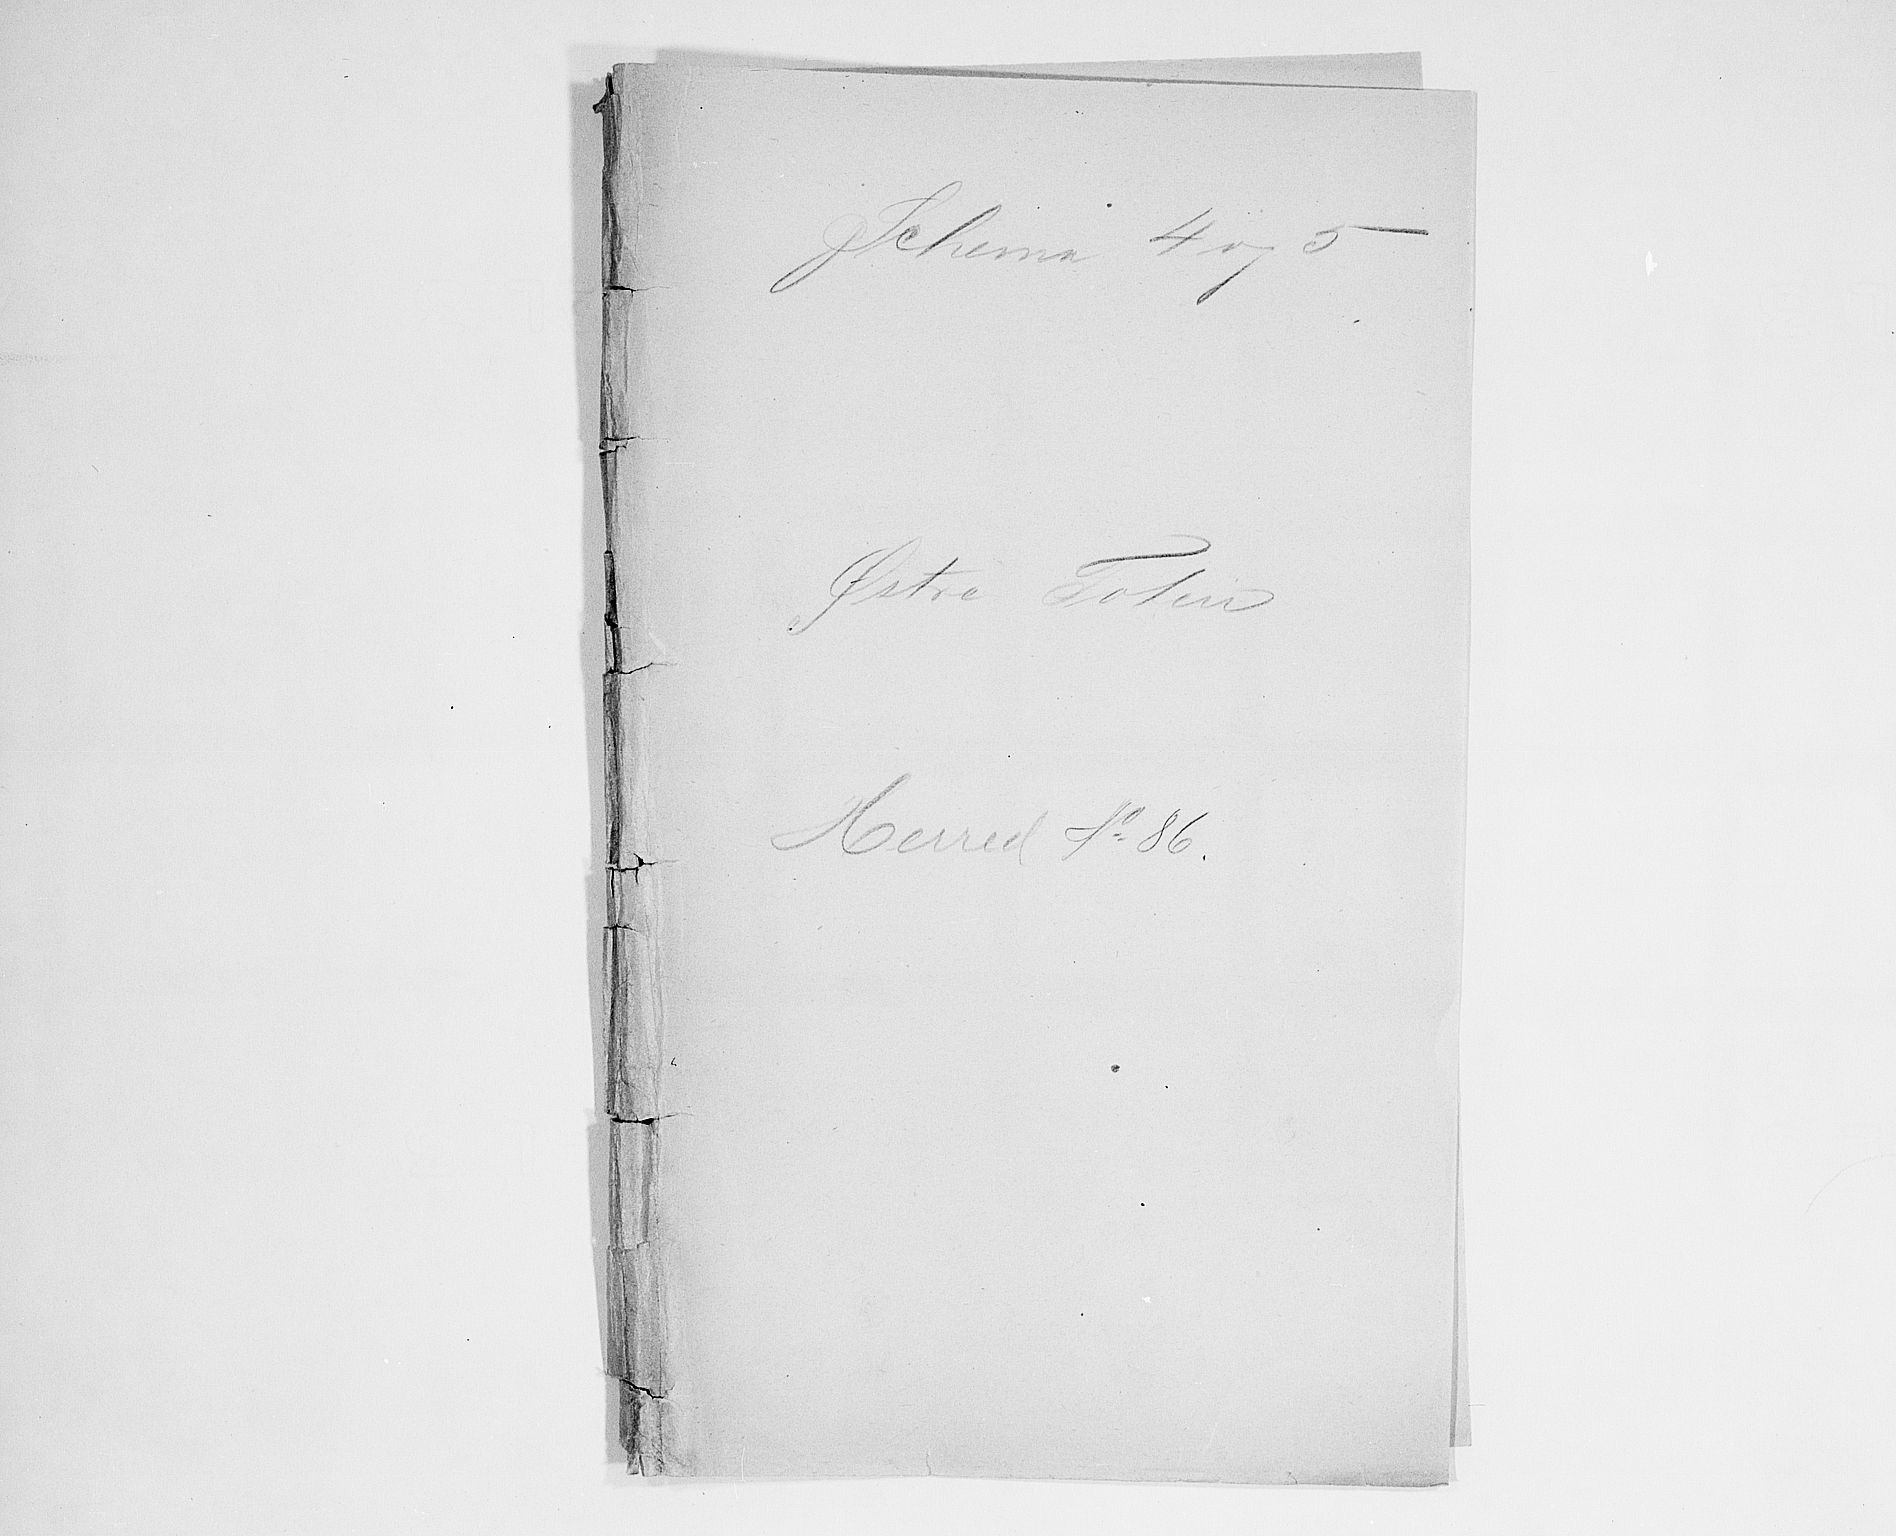 Schema 4 og 5
Østre Toten
Herred No 86.